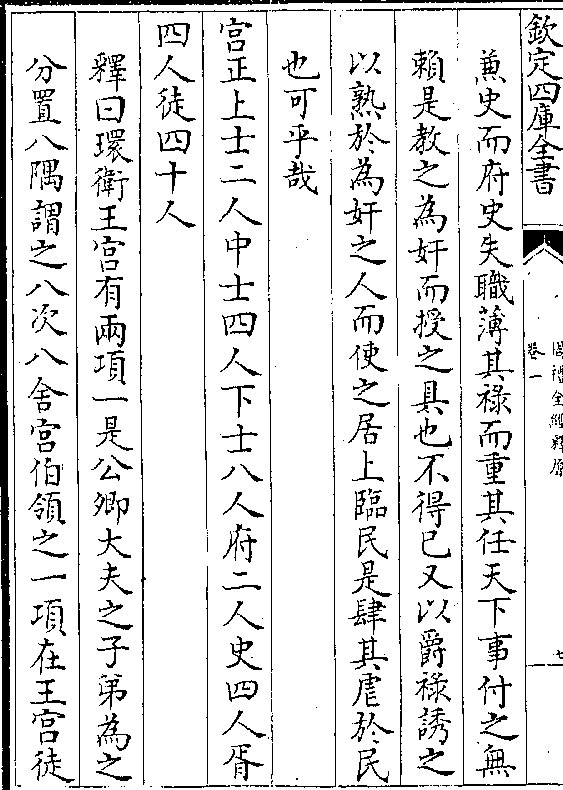 欽定四庫全書
周禮全經釋原
卷一
七
兼史而府史失職薄其祿而重其任天下事付之無
賴是教之為奸而授之具也不得已又以爵祿誘之
以熟於為奸之人而使之居上臨民是肆其虐於民
也可乎哉
宮正上士二人中士四人下士八人府二人史四人胥
四人徒四十人
釋曰環衛王宮有兩項一是公卿大夫之子弟為之
分置八隅謂之八次八舍宮伯領之一項在王宮徒